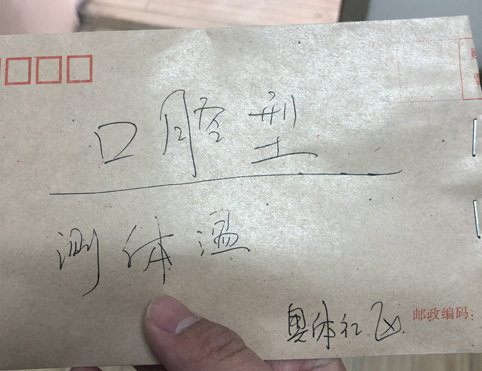 口腔型
测体温
奥体社区
邮政编码：